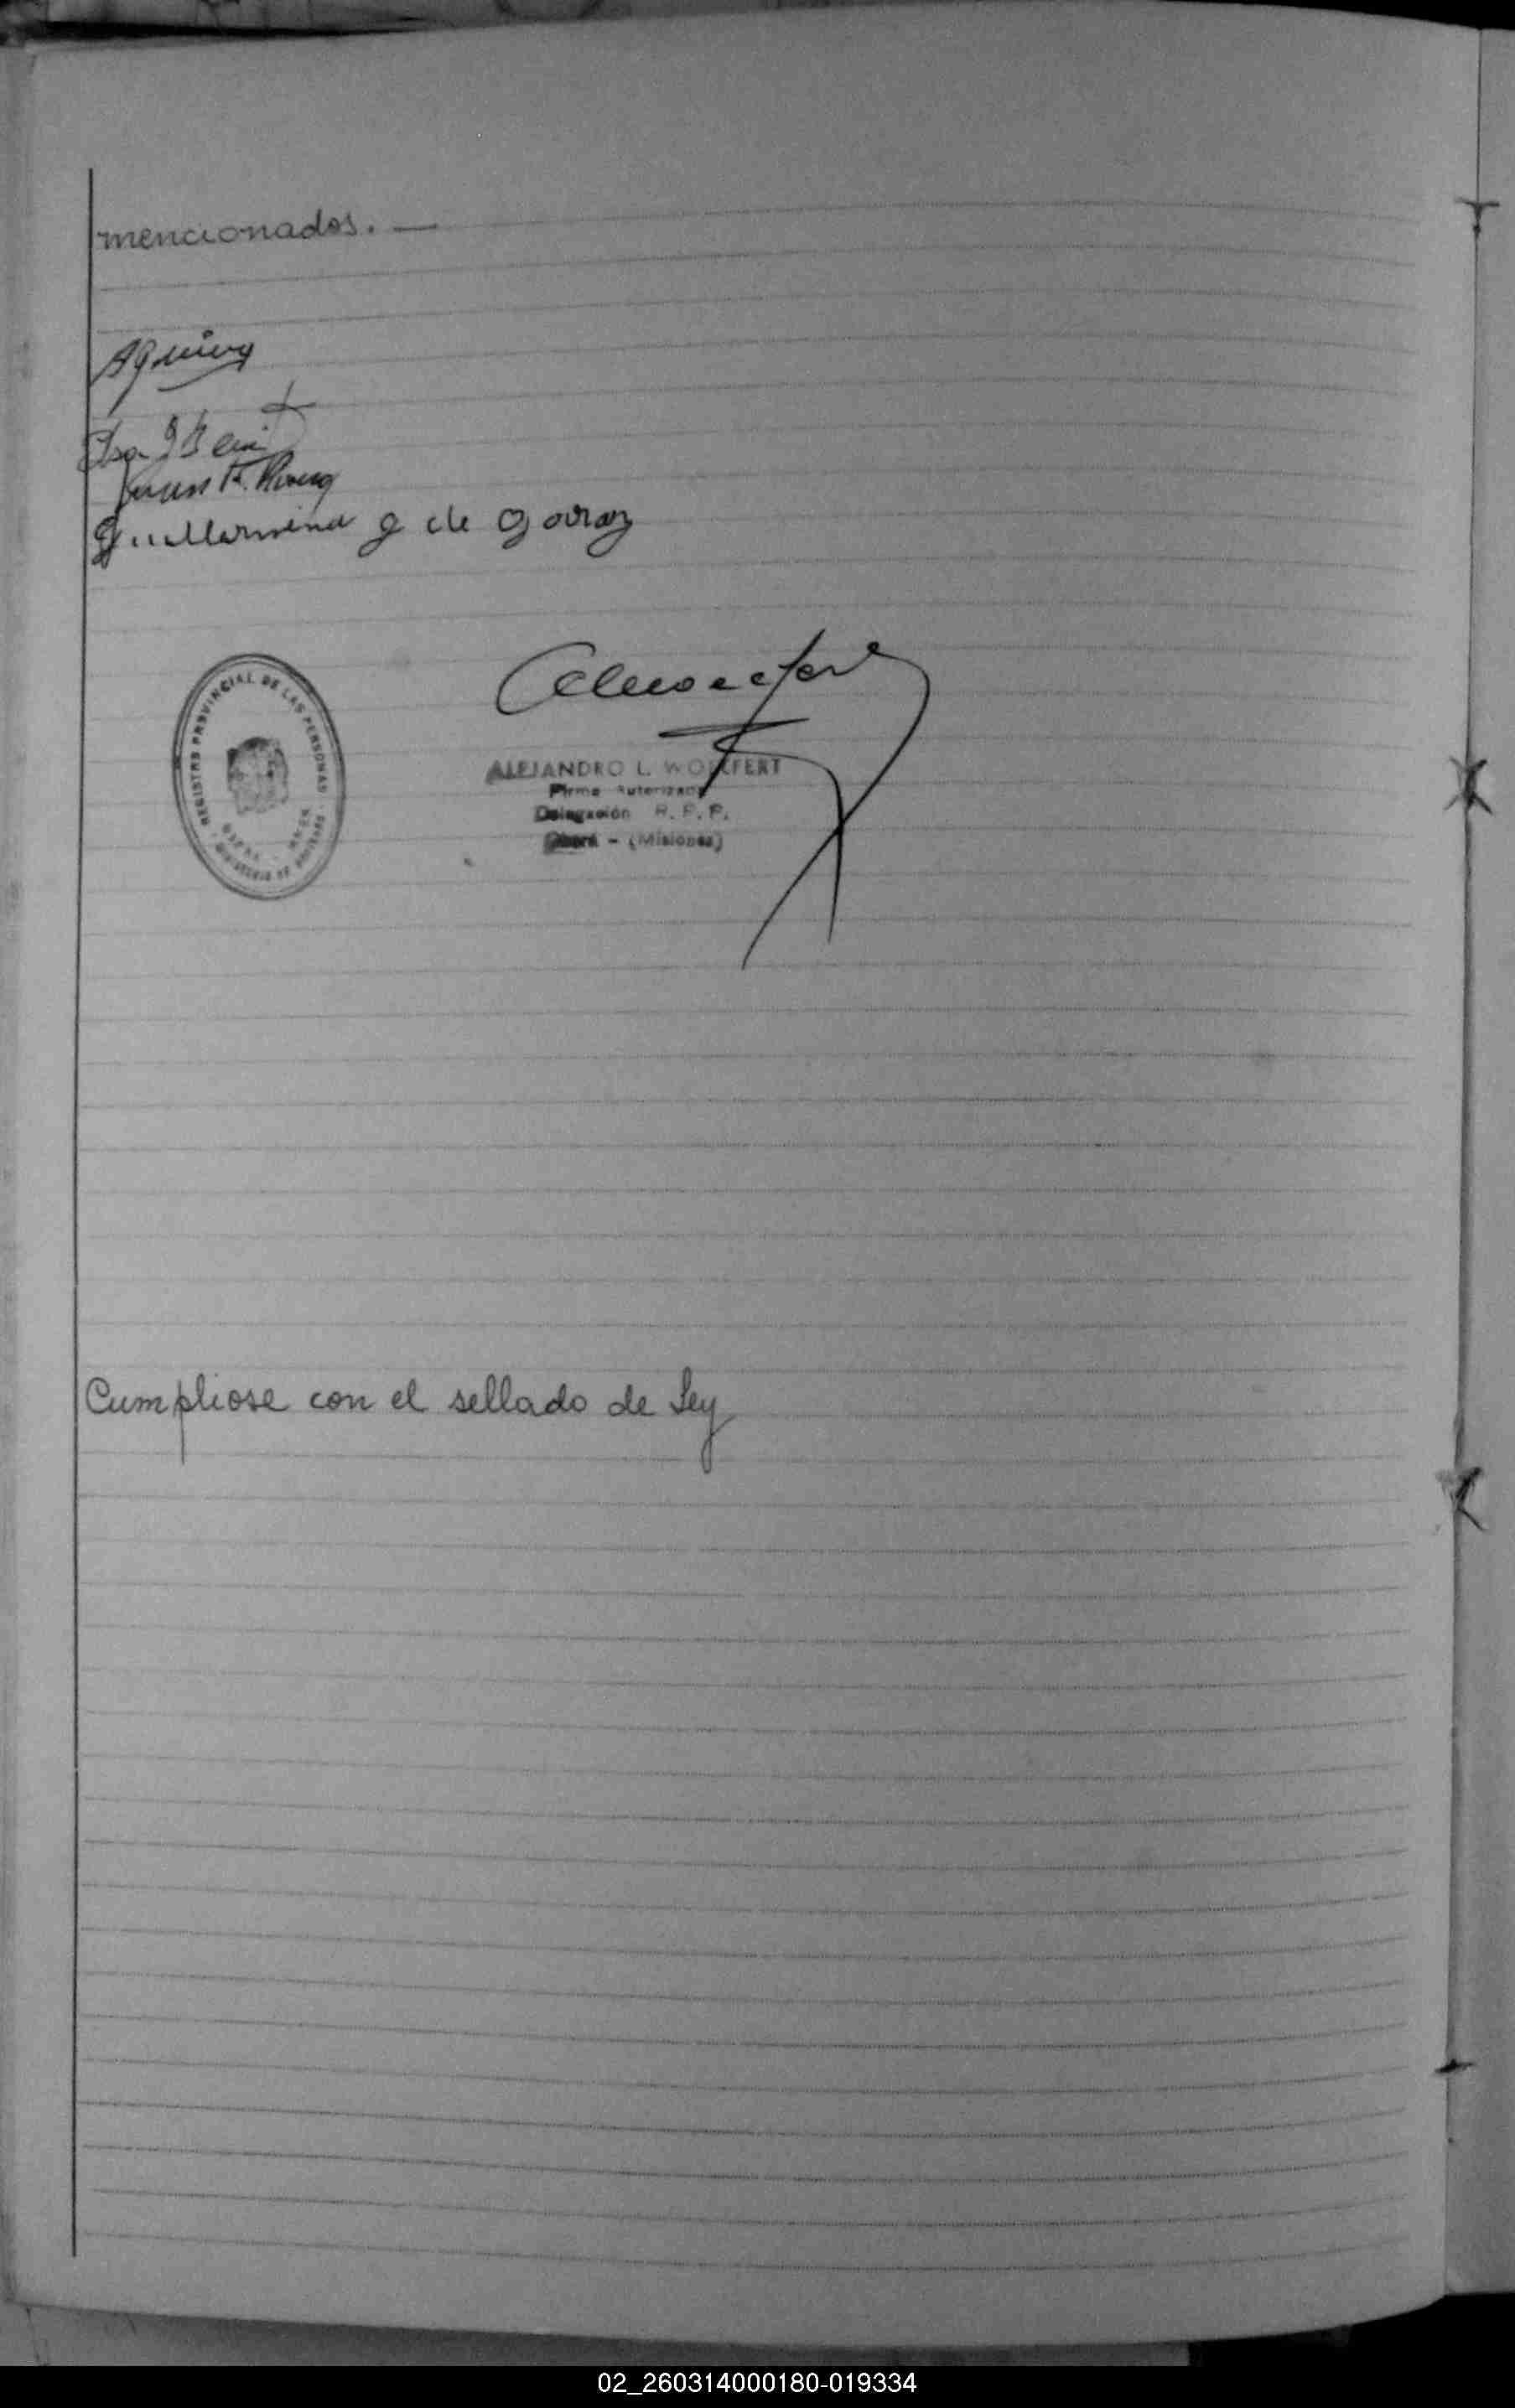 mencionados. —
Juan R. Rivero
Guillermina g de garay
REGISTRO PROVINCIAL DE LAS PERSONAS
MINISTERIO DE
ALEJANDRO L. WOLFFERT
Firma Autorizada
Delegación R. P. P.
Oberá - (Misiones)
Cumpliose con el sellado de Ley
02_260314000180-019334